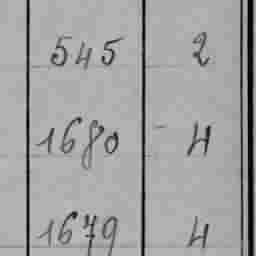 545 2
1680 4
1679 4